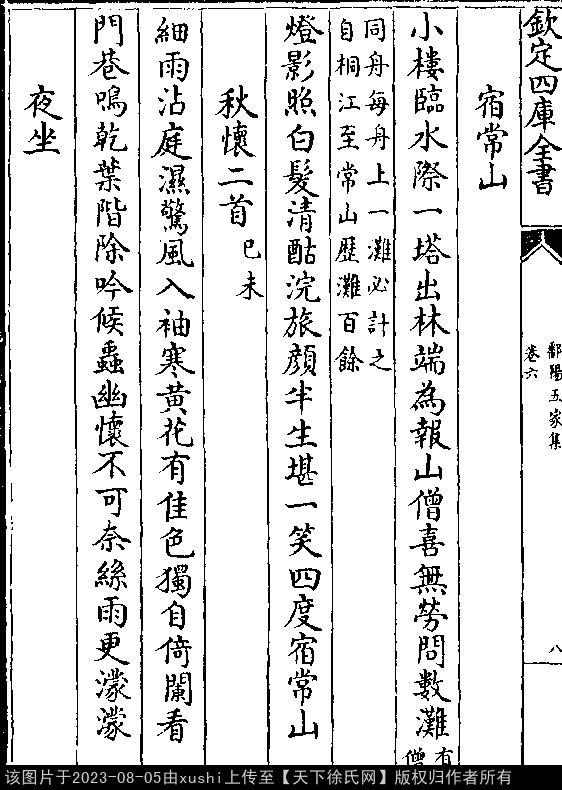 欽定四庫全書
鄱陽五家集
卷六
八
宿常山
小樓臨水際一塔出林端為報山僧喜無勞問數灘
有
僧
同舟每舟上一灘必計之
自桐江至常山歷灘百餘
燈影照白髮清酤浣旅顔半生堪一笑四度宿常山
秋懷二首
己未
細雨沾庭濕驚風入袖寒黃花有佳色獨自倚闌看
門巷鳴乾葉階除吟候蟲幽懷不可奈絲雨更濛濛
夜坐
该图片于2023-08-05由xushi上传至【天下徐氏网】版权归作者所有